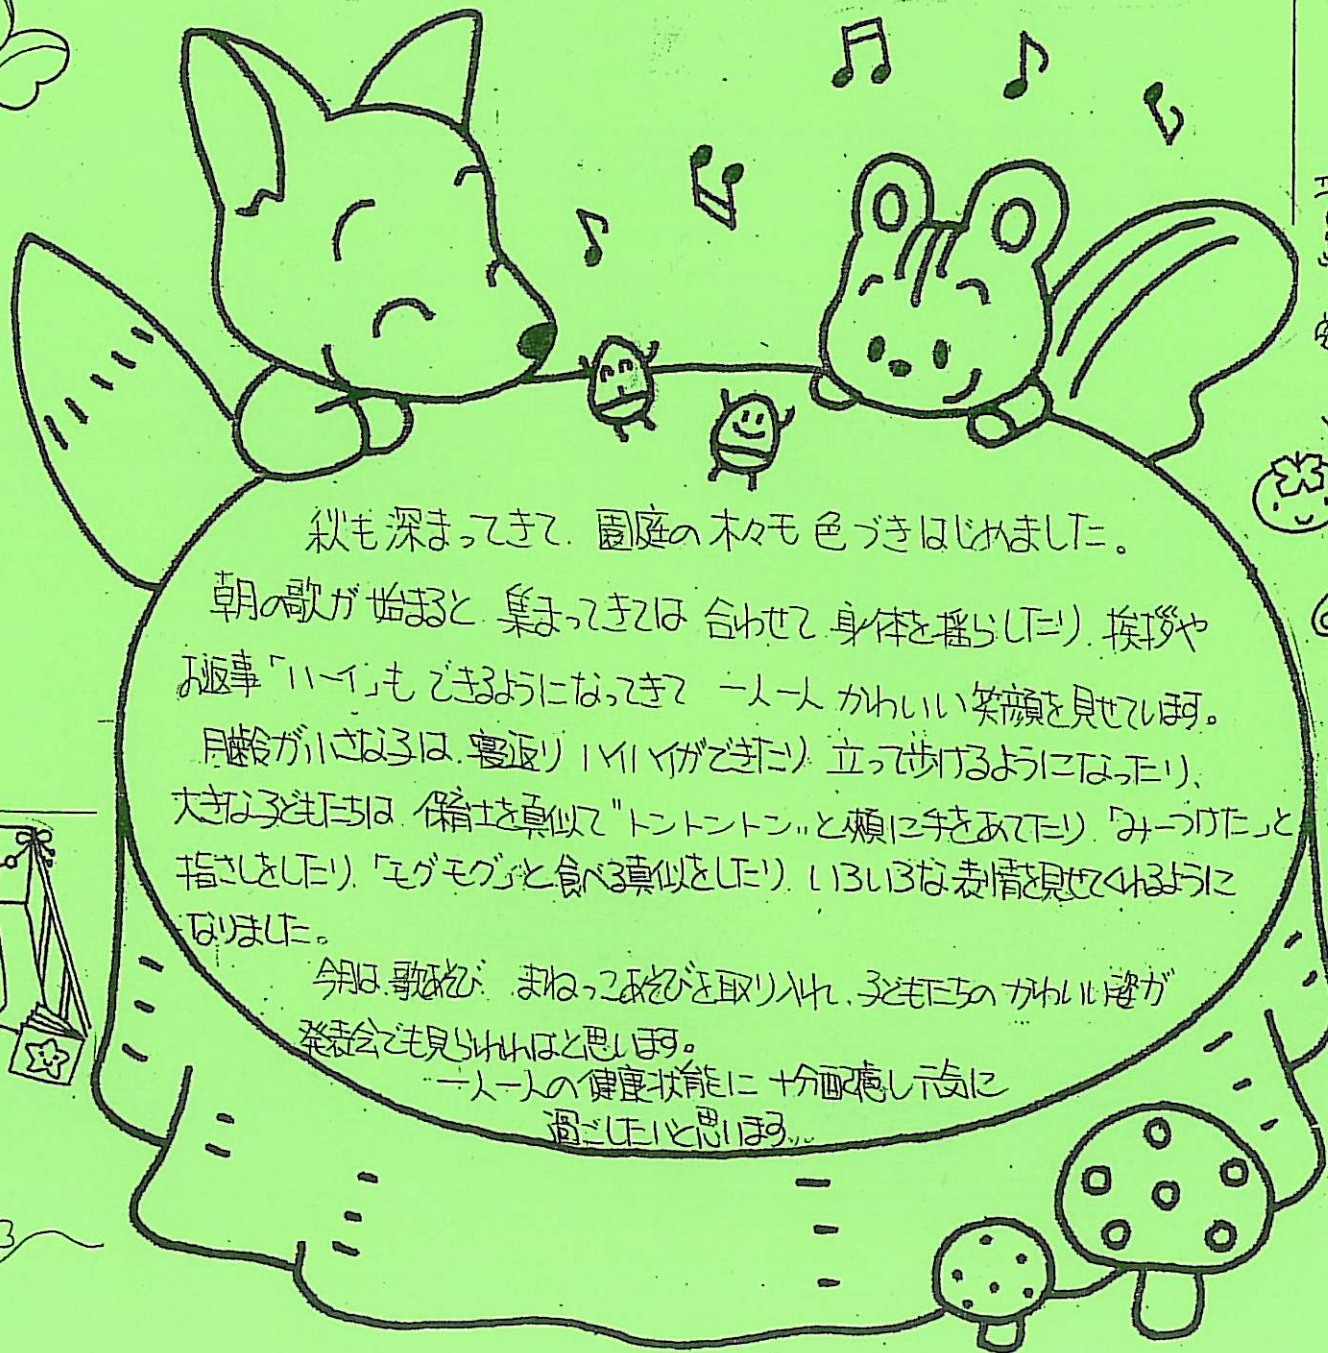 秋も深まってきて、園庭の木々も色づきはじめました。
朝の歌が始まると、集まってきては合わせて身体を揺らしたり、挨拶や
お返事「ハーイ」もできるようになってきて 一人一人かわいい笑顔を見せています。
月齢が小さな子は、寝返りハイハイができたり 立って歩けるようになったり、
大きな子どもたちは 保育士を真似て"トントントン"と頬に手をあてたり、「みーつけた」と
指さしをしたり、「モグモグ」と食べる真似をしたり、いろいろな表情を見せてくれるように
なりました。
今月は、歌あそび、まねっこあそびを取り入れ、子どもたちのかわいい姿が
発表会でも見られればと思います。
一人一人の健康状態に十分配慮し元気に
過ごしたいと思います…